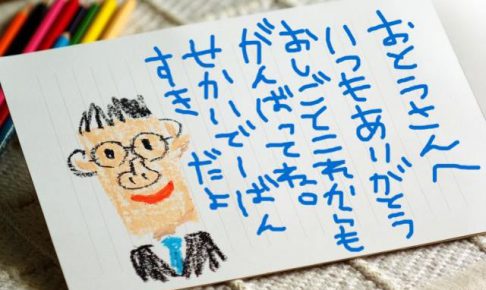 おとうさんへ
いつもありがとう
おしごとこれからも
がんばってね。
せかいでいーばん
すき だよ